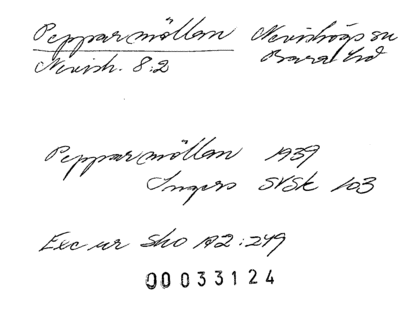 Pepparmöllan Nevishögs sn
Nevish. 8:2 Bara hd
Pepparmöllan 1939
Ingers SVSk 103
Exc ur Sko A2:249
00033124